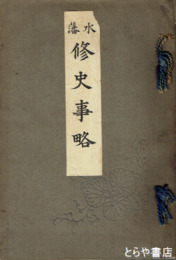 水藩
修史事略
© とらや書店